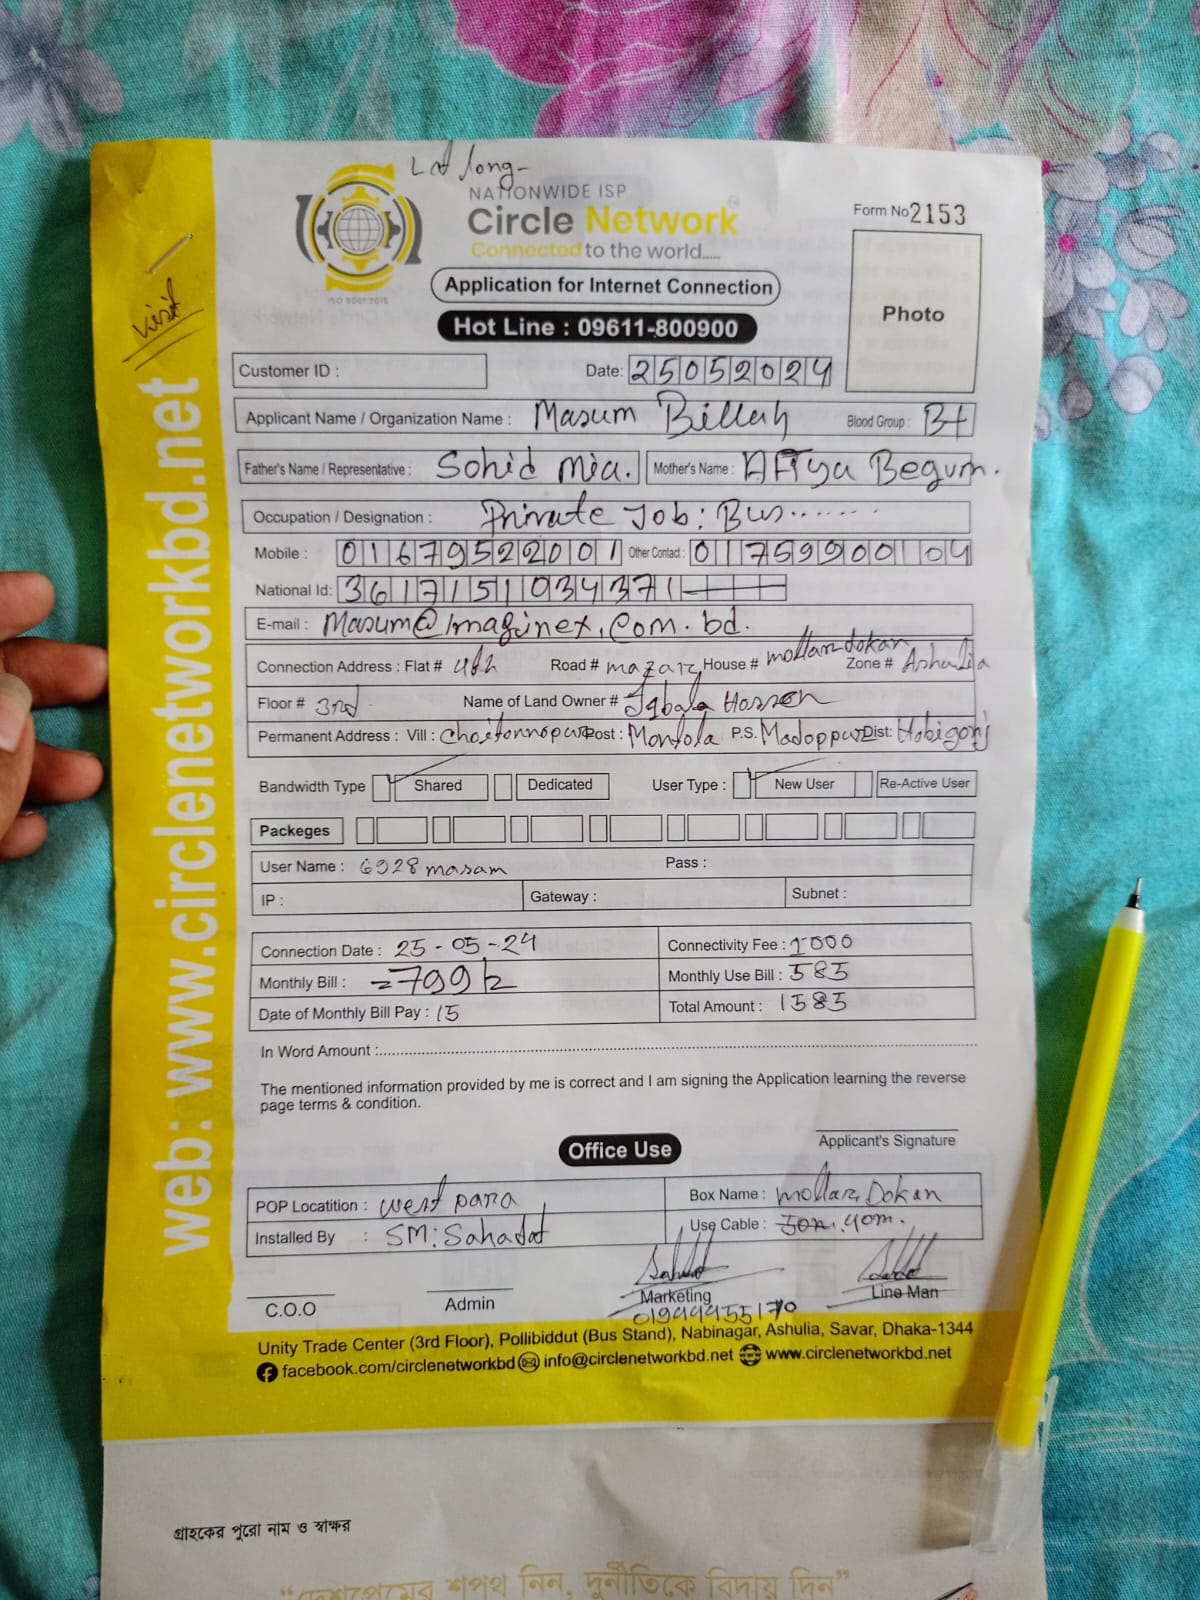 Lat long-
NATIONWIDE ISP
Circle Network
Connected to the world.....
ISO 9001:2015
Form No 2153
Application for Internet Connection
Hot Line : 09611-800900
Photo
visit
web: www.circlenetworkbd.net
Customer ID :
Date: 25052024
Applicant Name / Organization Name : Masum Billah Blood Group : B+
Father's Name / Representative : Sohid Mia. Mother's Name : Afiya Begum.
Occupation / Designation : Private Job: Bus.......
Mobile : 01679522001 Other Contact : 01759900104
National Id: 3617151034371
E-mail : Masum@Imaginex.com.bd.
Connection Address : Flat # 4th Road # mazar, House # mollar dokan Zone # Ashulia
Floor # 3rd Name of Land Owner # Iqbala Hossen
Permanent Address : Vill : Choitonnopur Post : Montola P.S. Madoppur Dist: Hobigonj
Bandwidth Type Shared Dedicated User Type : New User Re-Active User
Packeges
User Name : 6928 masum Pass :
IP : Gateway : Subnet :
Connection Date : 25-05-24 Connectivity Fee : 1000
Monthly Bill : =799 Monthly Use Bill : 585
Date of Monthly Bill Pay : 15 Total Amount : 1585
In Word Amount :
The mentioned information provided by me is correct and I am signing the Application learning the reverse
page terms & condition.
Applicant's Signature
Office Use
POP Locatition : west para Box Name : mollar Dokan
Installed By : SM: Sahadat Use Cable : 40m.
C.O.O Admin Marketing Line Man
01944955170
Unity Trade Center (3rd Floor), Pollibiddut (Bus Stand), Nabinagar, Ashulia, Savar, Dhaka-1344
facebook.com/circlenetworkbd info@circlenetworkbd.net www.circlenetworkbd.net
গ্রাহকের পুরো নাম ও স্বাক্ষর
“দেশপ্রেমের শপথ নিন, দুর্নীতিকে বিদায় দিন”